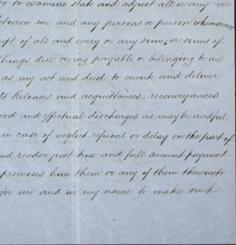 or to examine state and adjust all or any
between me and any person or persons whomsoever
ipt of all and every or any sum or sums of
things due owing payable or belonging to me
as my act and deed to make and deliver
ts Releases and acquittances, reconveyances
ood and effectual discharges as may be needful
in case of neglect refusal or delay on the part of
nd render just true and full account payment
premises him them or any of them thereunto
for me and in my name to make such